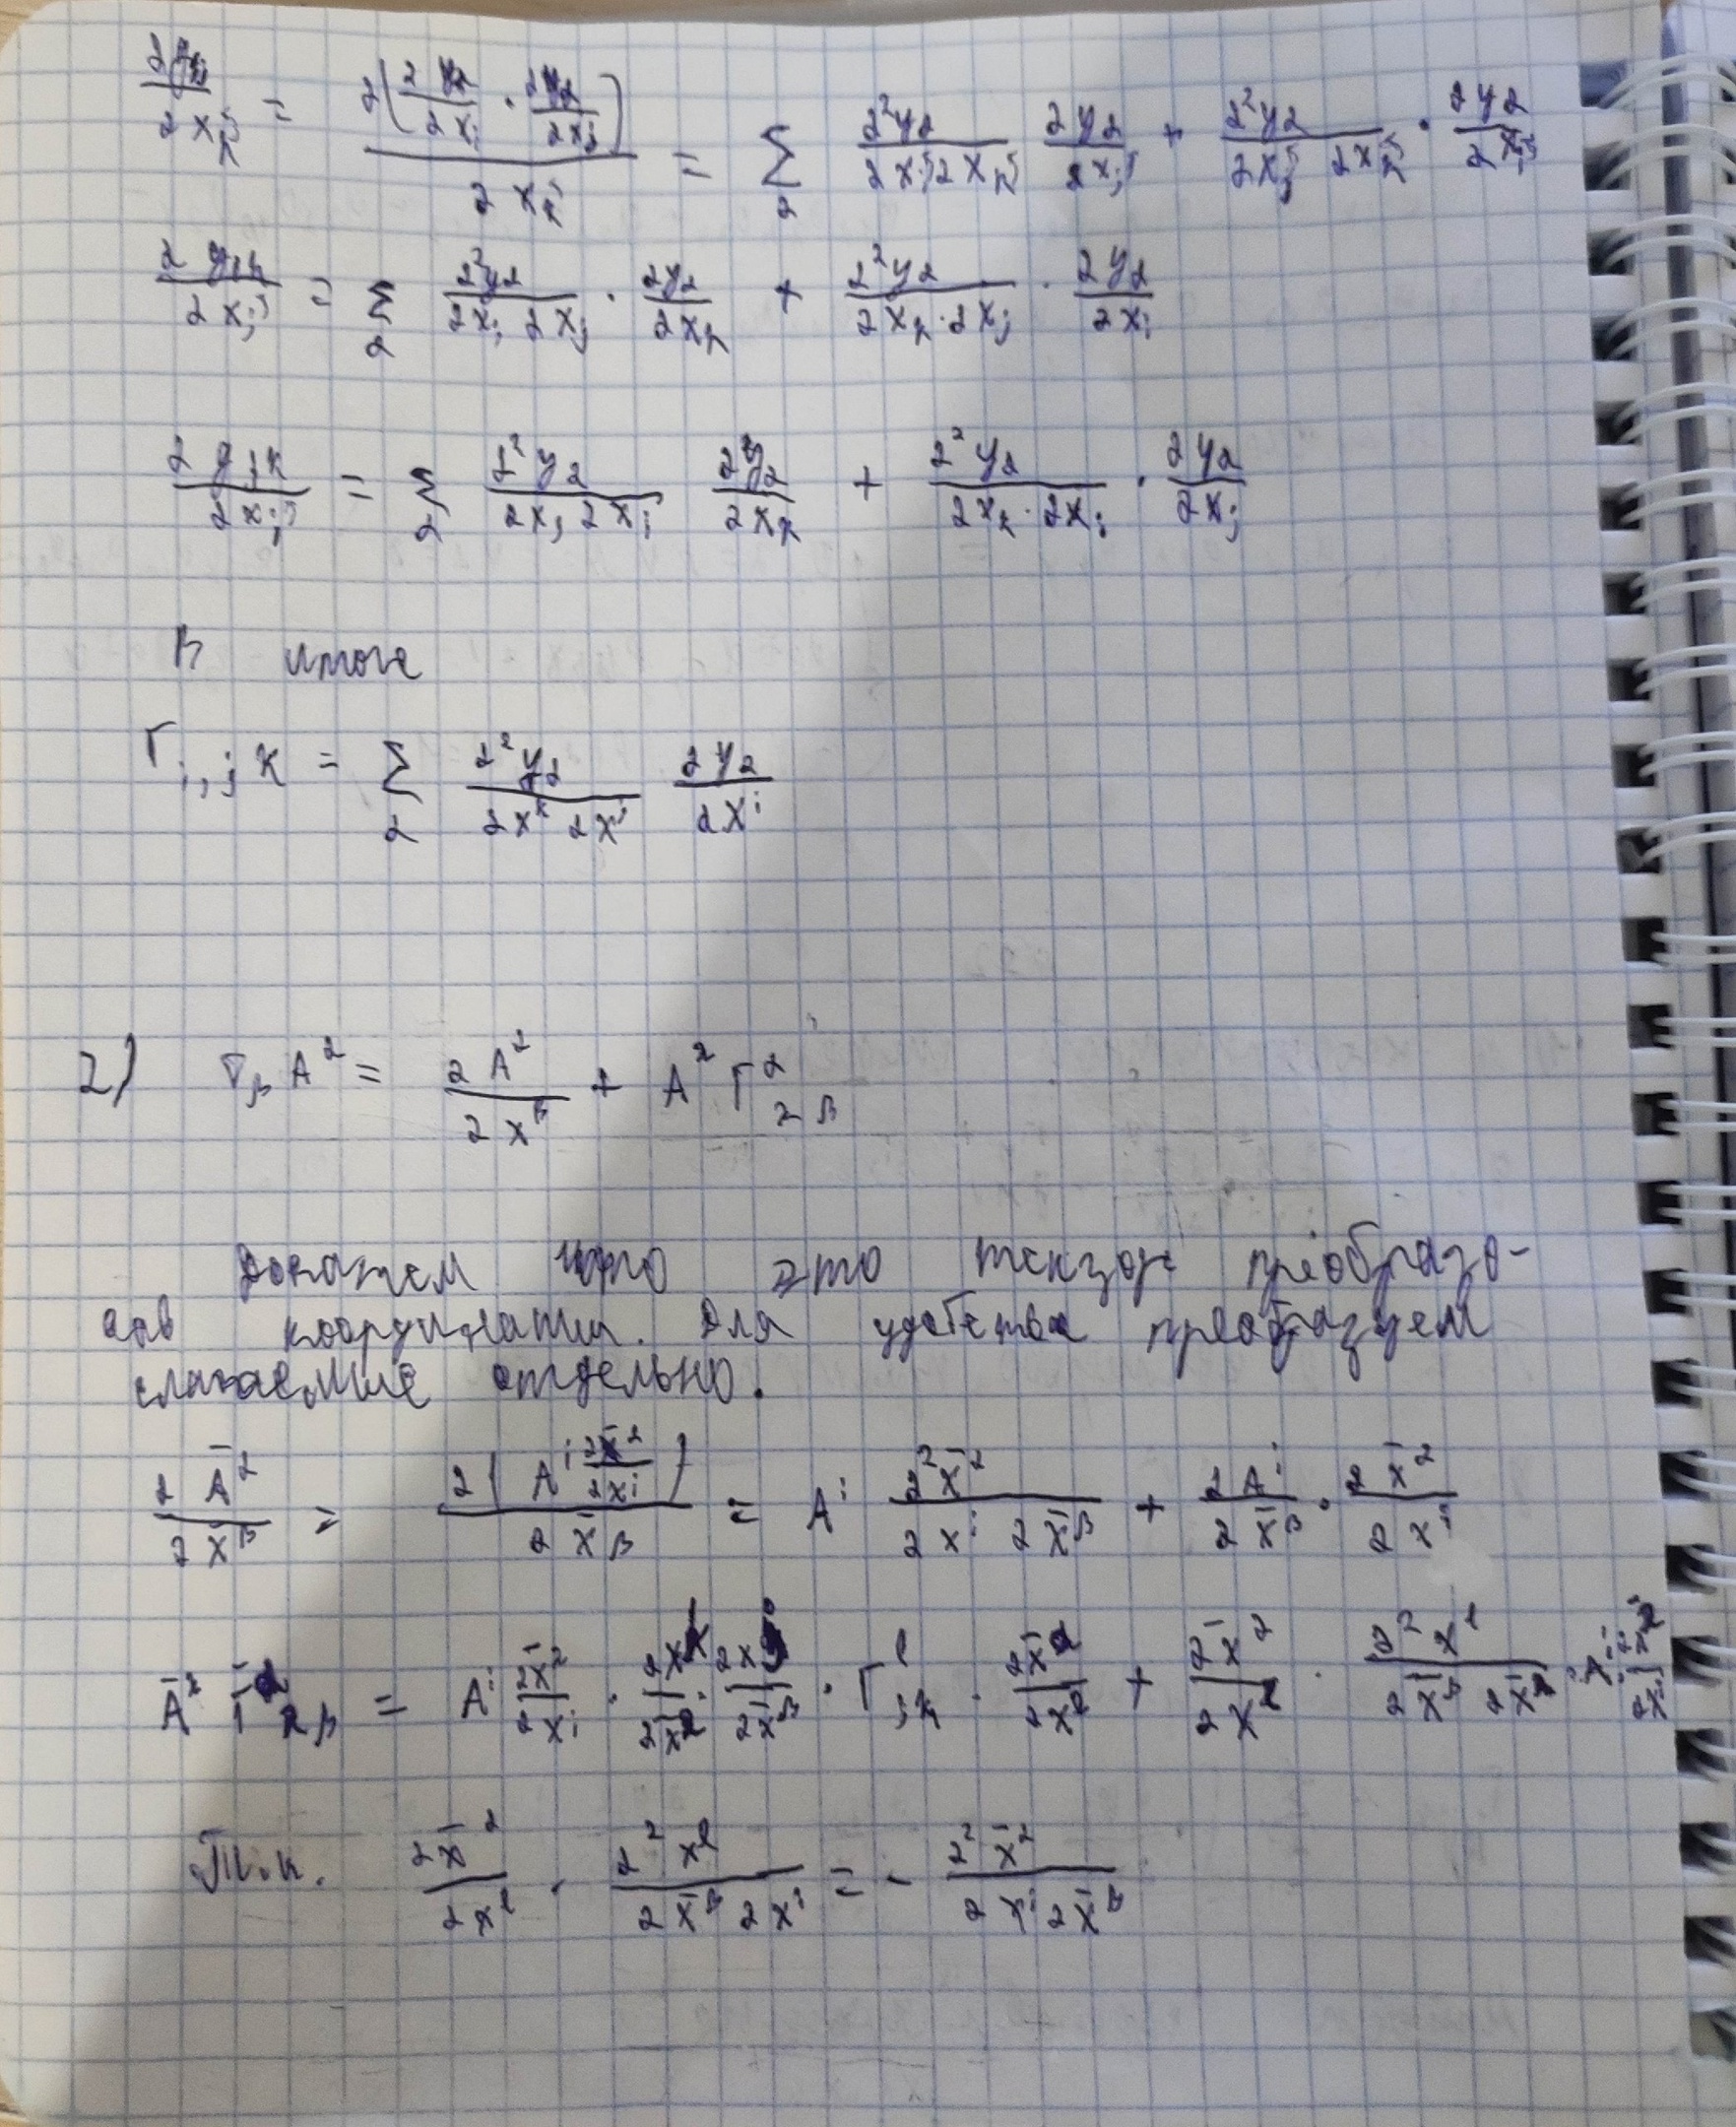 ∂g_ij / ∂x_k = ∂( ∂y_α/∂x_i · ∂y_α/∂x_j ) / ∂x_k = Σ_α ∂²y_α/(∂x_i ∂x_k) ∂y_α/∂x_j + ∂²y_α/(∂x_j ∂x_k) · ∂y_α/∂x_i
∂g_ik / ∂x_j = Σ_α ∂²y_α/(∂x_i ∂x_j) · ∂y_α/∂x_k + ∂²y_α/(∂x_k · ∂x_j) · ∂y_α/∂x_i
∂g_jk / ∂x_i = Σ_α ∂²y_α/(∂x_j ∂x_i) ∂y_α/∂x_k + ∂²y_α/(∂x_k · ∂x_i) · ∂y_α/∂x_j
В итоге
Γ_i,jk = Σ_α ∂²y_α/(∂x^k ∂x^j) ∂y_α/∂x^i
2) ∇_β A^α = ∂A^α/∂x^β + A^α Γ^α_αβ
Докажем что это тензор преобразо-
вав координаты. Для удобства преобразуем
слагаемые отдельно.
∂Ā^α/∂x̄^β = ∂( A^i ∂x̄^α/∂x^i ) / ∂x̄^β = A^i ∂²x̄^α/(∂x^i ∂x̄^β) + ∂A^i/∂x̄^β · ∂x̄^α/∂x^i
= A^i ∂x̄^α/∂x^i
Т.к. ∂x̄^α/∂x^l · ∂²x^l/(∂x̄^β ∂x^i) = - ∂²x̄^α/(∂x^i ∂x̄^β)